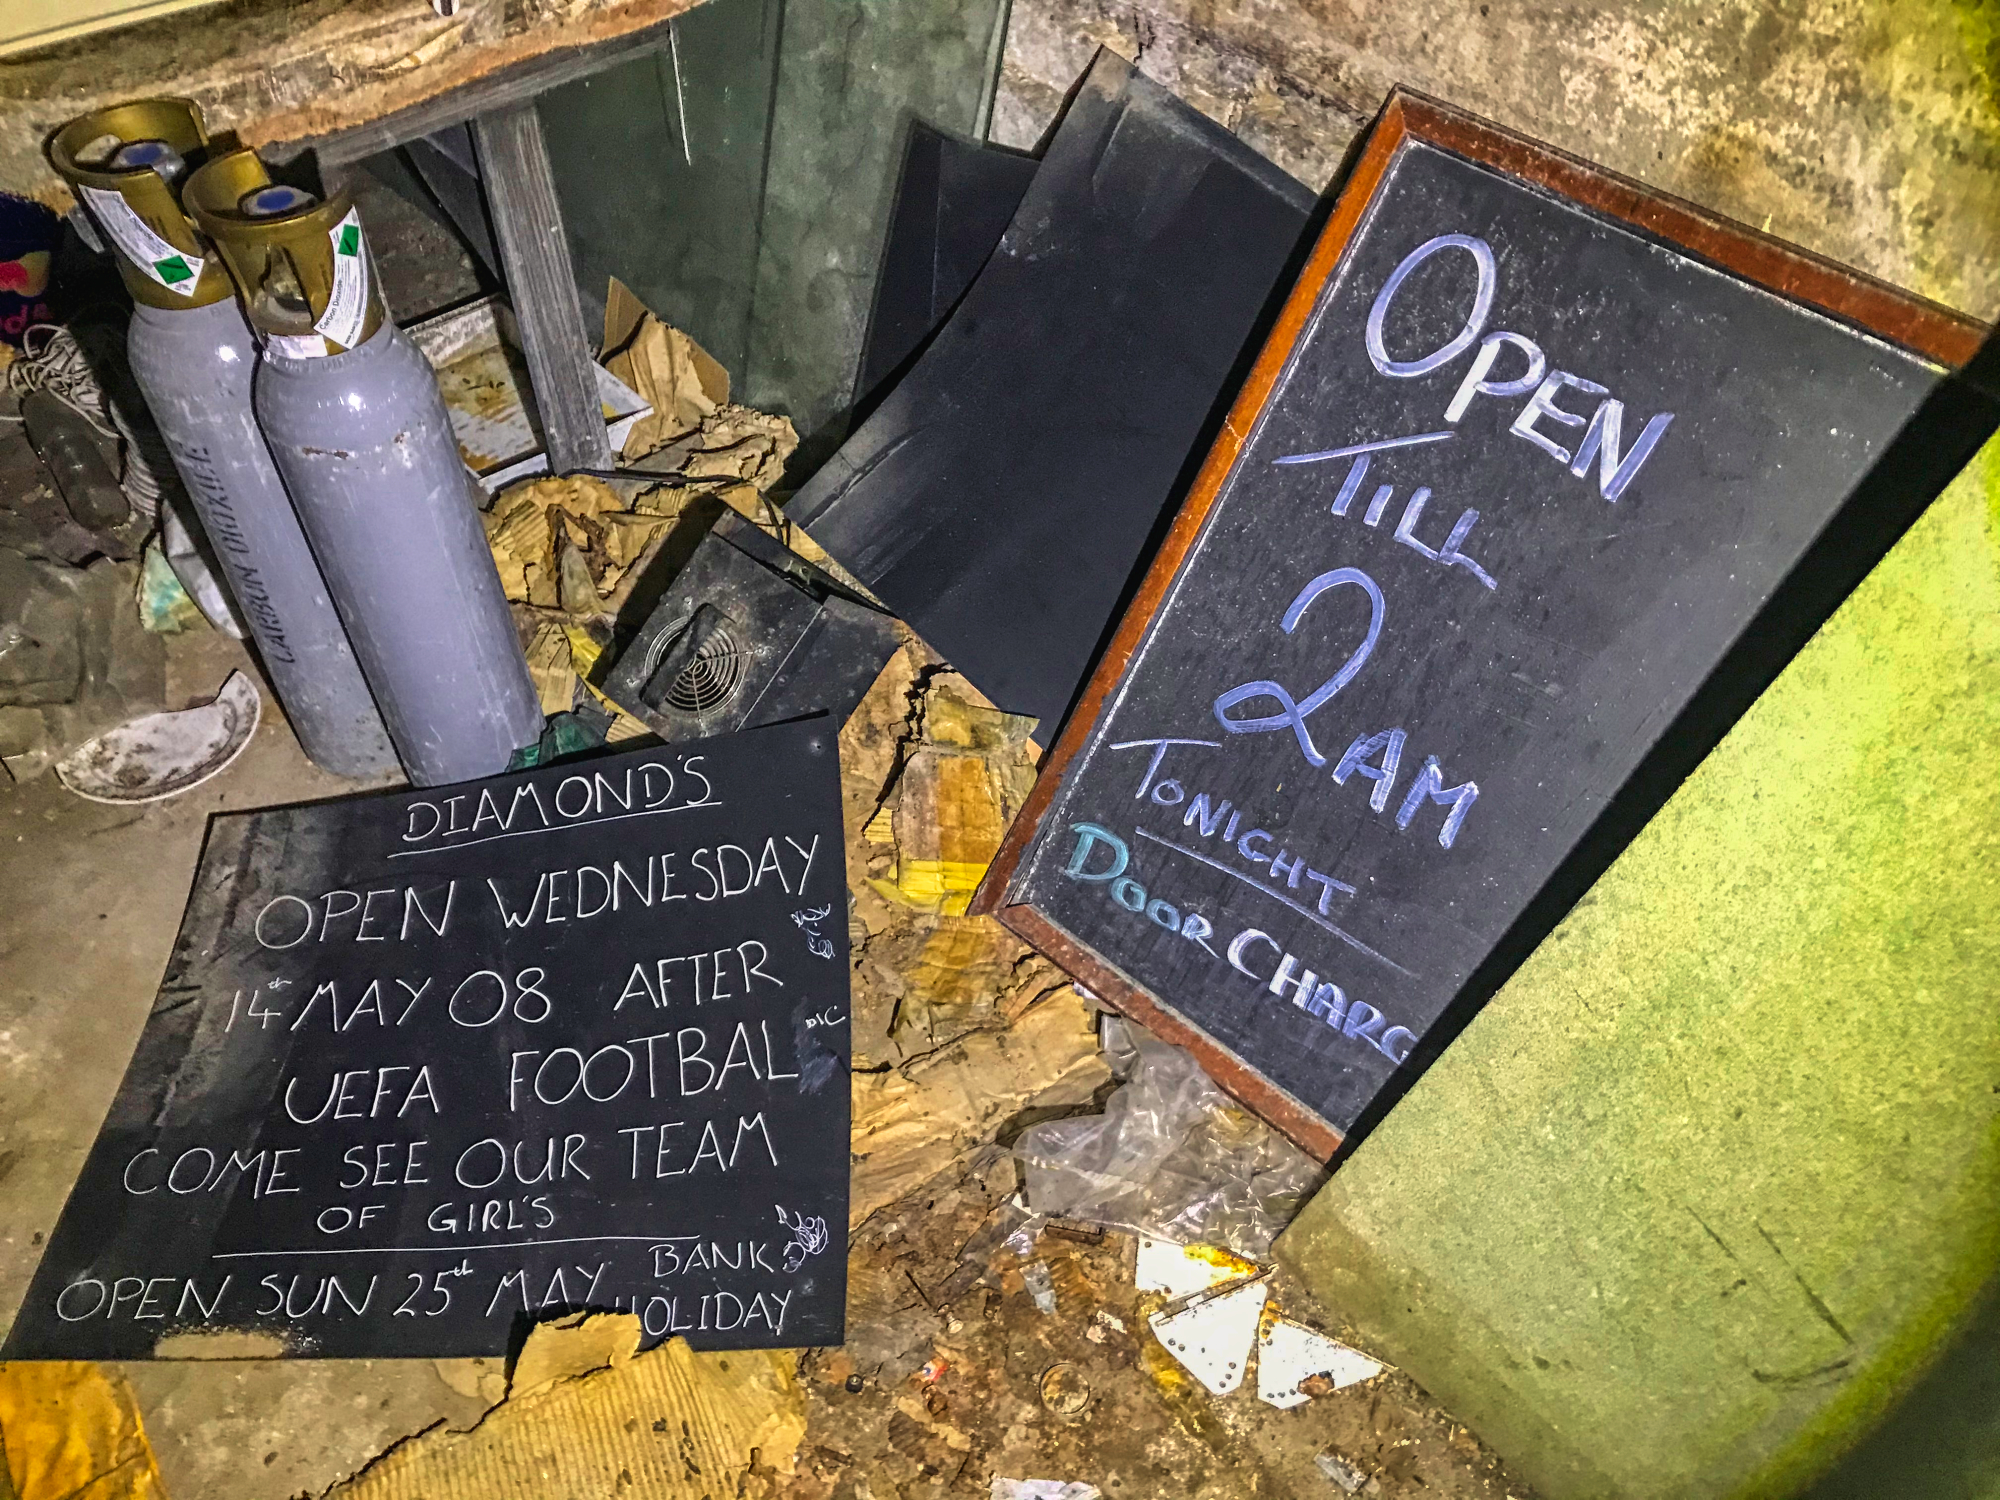 DIAMOND'S
OPEN WEDNESDAY
14th MAY 08 AFTER
UEFA FOOTBAL
COME SEE OUR TEAM
OF GIRL'S
OPEN SUN 25th MAY BANK
HOLIDAY
OPEN
TILL
2AM
TONIGHT
DOOR CHARG
CARBON DIOXIDE
Carbon Dioxide